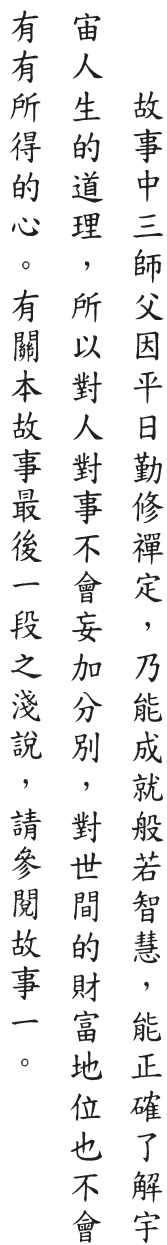 故事中三師父因平日勤修禪定，乃能成就般若智慧，能正確了解宇
宙人生的道理，所以對人對事不會妄加分別，對世間的財富地位也不會
有有所得的心。有關本故事最後一段之淺說，請參閱故事一。